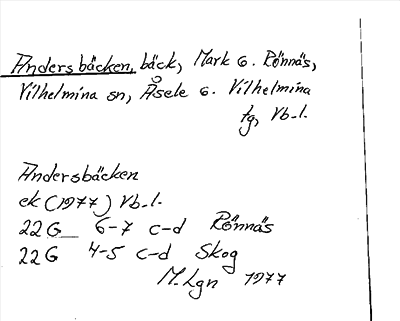 Andersbäcken, bäck, Mark G. Rönnäs,
Vilhelmina sn, Åsele o. Vilhelmina
tg, Vb-l.
Andersbäcken
ek (1977) Vb-l.
22G 6-7 c-d Rönnäs
22G 4-5 c-d Skog
M.Lgn 1977